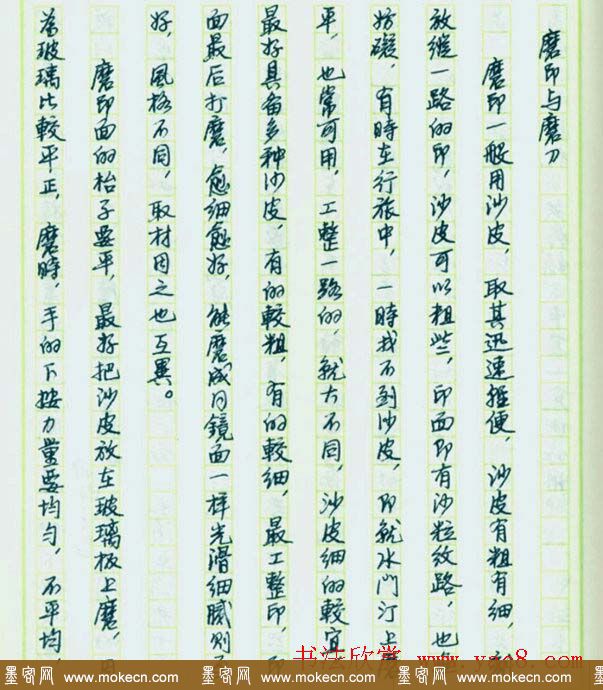 磨印与磨刀
磨印一般用沙皮，取其迅速輕便，沙皮有粗有细，
放纵一路的印，沙皮可以粗些，印面即有沙粒纹路，也
妨礙，有時在行旅中，一時找不到沙皮，即就水門汀上磨
平，也常可用，工整一路的，就大不同，沙皮细的較宜
最好具备多种沙皮，有的較粗，有的較细，最工整印，
面最后打磨，愈细愈好，能磨成同鏡面一样光滑细膩则
好，風格不同，取材因之也互異。
磨印面的枱子要平，最好把沙皮放在玻璃板上磨，因
为玻璃比較平正，磨時，手的下按力量要均匀，不平均，
书法欣赏 www.yac8.com
墨客网 www.mokecn.com 墨客网 www.mokecn.com 墨客网 www.mokecn.com